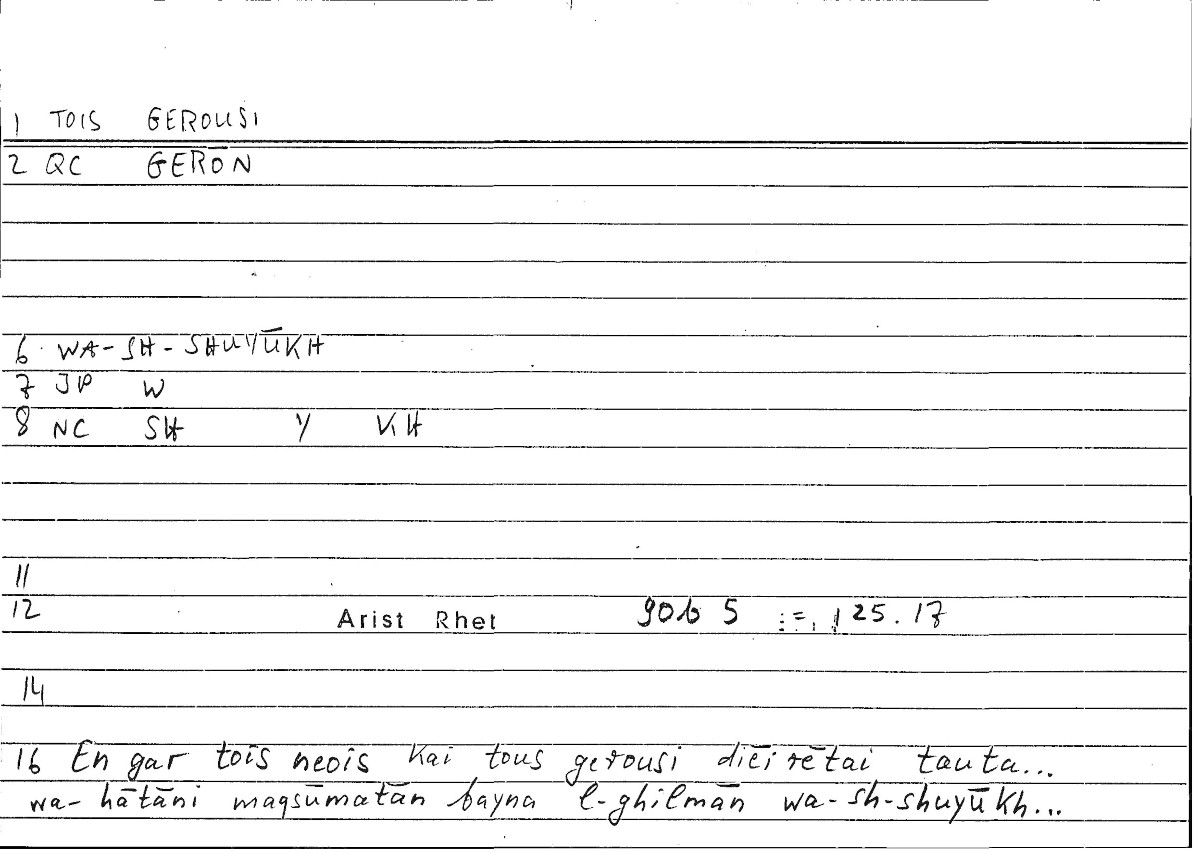 1 TOIS GEROUSI
2 QC GERŌN
6 WA-SH-SHUYŪKH
7 JP W
8 NC SH Y KH
11
12 Arist Rhet 90b 5 125.17
14
16 En gar tois neois kai tous gerousi diēirētai tauta...
wa-hātāni maqsūmatān bayna l-ghilmān wa-sh-shuyūkh...